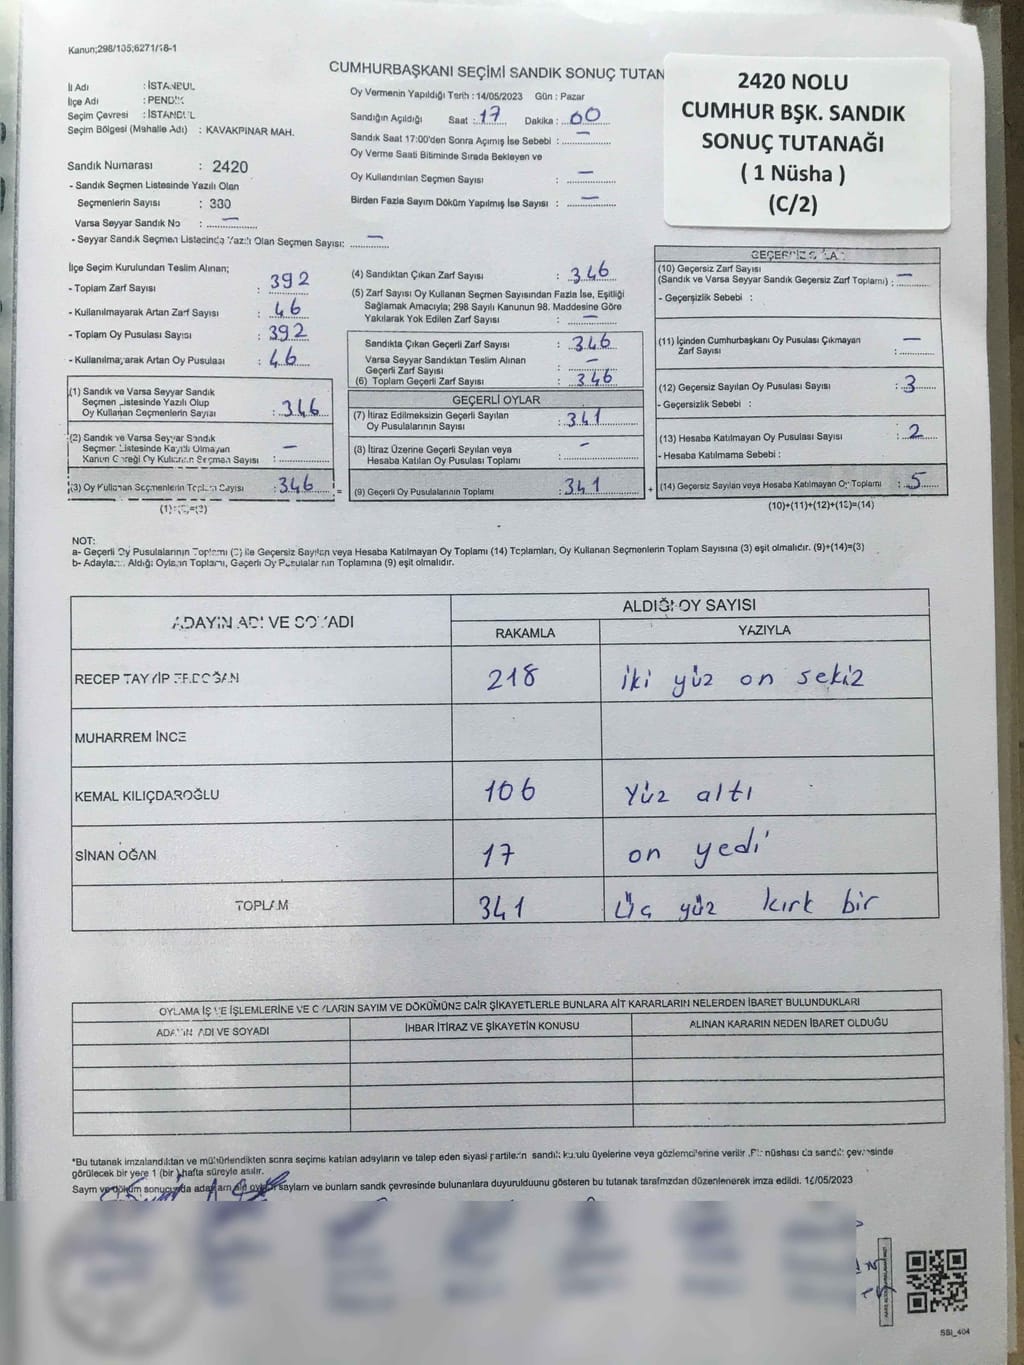 Kanun;298/105;6271/18-1
CUMHURBAŞKANI SEÇİMİ SANDIK SONUÇ TUTAN
2420 NOLU
CUMHUR BŞK. SANDIK
SONUÇ TUTANAĞI
( 1 Nüsha )
(C/2)
İl Adı : İSTANBUL
İlçe Adı : PENDİK
Seçim Çevresi : İSTANBUL
Seçim Bölgesi (Mahalle Adı) : KAVAKPINAR MAH.
Sandık Numarası : 2420
- Sandık Seçmen Listesinde Yazılı Olan
Seçmenlerin Sayısı : 380
Varsa Seyyar Sandık No : —
- Seyyar Sandık Seçmen Listesinde Yazılı Olan Seçmen Sayısı: —
Oy Vermenin Yapıldığı Tarih : 14/05/2023 Gün : Pazar
Sandığın Açıldığı Saat : 17 Dakika : 00
Sandık Saat 17:00'den Sonra Açımış İse Sebebi : —
Oy Verme Saati Bitiminde Sırada Bekleyen ve
Oy Kullandırılan Seçmen Sayısı : —
Birden Fazla Sayım Döküm Yapılmış İse Sayısı : —
İlçe Seçim Kurulundan Teslim Alınan;
- Toplam Zarf Sayısı : 392
- Kullanılmayarak Artan Zarf Sayısı : 46
- Toplam Oy Pusulası Sayısı : 392
- Kullanılmayarak Artan Oy Pusulası : 46
(1) Sandık ve Varsa Seyyar Sandık
Seçmen Listesinde Yazılı Olup
Oy Kullanan Seçmenlerin Sayısı : 346
(2) Sandık ve Varsa Seyyar Sandık
Seçmen Listesinde Kayıtlı Olmayan
Kanun Gereği Oy Kullanan Seçmen Sayısı : —
(3) Oy Kullanan Seçmenlerin Toplam Sayısı : 346 =
(1)+(2)=(3)
(4) Sandıktan Çıkan Zarf Sayısı : 346
(5) Zarf Sayısı Oy Kullanan Seçmen Sayısından Fazla İse, Eşitliği
Sağlamak Amacıyla; 298 Sayılı Kanunun 98. Maddesine Göre
Yakılarak Yok Edilen Zarf Sayısı : —
Sandıkta Çıkan Geçerli Zarf Sayısı : 346
Varsa Seyyar Sandıktan Teslim Alınan
Geçerli Zarf Sayısı : —
(6) Toplam Geçerli Zarf Sayısı : 346
GEÇERLİ OYLAR
(7) İtiraz Edilmeksizin Geçerli Sayılan
Oy Pusulalarının Sayısı : 341
(8) İtiraz Üzerine Geçerli Sayılan veya
Hesaba Katılan Oy Pusulası Toplamı : —
(9) Geçerli Oy Pusulalarının Toplamı : 341 +
(10) Geçersiz Zarf Sayısı
(Sandık ve Varsa Seyyar Sandık Geçersiz Zarf Toplamı) : —
- Geçersizlik Sebebi :
(11) İçinden Cumhurbaşkanı Oy Pusulası Çıkmayan
Zarf Sayısı : —
(12) Geçersiz Sayılan Oy Pusulası Sayısı : 3
- Geçersizlik Sebebi :
(13) Hesaba Katılmayan Oy Pusulası Sayısı : 2
- Hesaba Katılmama Sebebi :
(14) Geçersiz Sayılan veya Hesaba Katılmayan Oy Toplamı : 5
(10)+(11)+(12)+(13)=(14)
NOT:
a- Geçerli Oy Pusulalarının Toplamı (9) ile Geçersiz Sayılan veya Hesaba Katılmayan Oy Toplamı (14) Toplamları, Oy Kullanan Seçmenlerin Toplam Sayısına (3) eşit olmalıdır. (9)+(14)=(3)
b- Adayların Aldığı Oyların Toplamı, Geçerli Oy Pusulalarının Toplamına (9) eşit olmalıdır.
ADAYIN ADI VE SOYADI ALDIĞI OY SAYISI
RAKAMLA YAZIYLA
RECEP TAYYİP ERDOĞAN 218 iki yüz on sekiz
MUHARREM İNCE
KEMAL KILIÇDAROĞLU 106 Yüz altı
SİNAN OĞAN 17 on yedi
TOPLAM 341 Üç yüz kırk bir
OYLAMA İŞ VE İŞLEMLERİNE VE OYLARIN SAYIM VE DÖKÜMÜNE DAİR ŞİKAYETLERLE BUNLARA AİT KARARLARIN NELERDEN İBARET BULUNDUKLARI
ADAYIN ADI VE SOYADI İHBAR İTİRAZ VE ŞİKAYETİN KONUSU ALINAN KARARIN NEDEN İBARET OLDUĞU
*Bu tutanak imzalandıktan ve mühürlendikten sonra seçime katılan adayların ve talep eden siyasi partilerin sandık kurulu üyelerine veya gözlemcilerine verilir. Bir nüshası da sandık çevresinde
görülecek bir yere 1 (bir) hafta süreyle asılır.
Sayım ve döküm sonucunda adayların aldığı oyların sayıların ve bunların sandık çevresinde bulunanlara duyurulduunu gösteren bu tutanak tarafımızdan düzenlenerek imza edildi. 14/05/2023
SSI_404